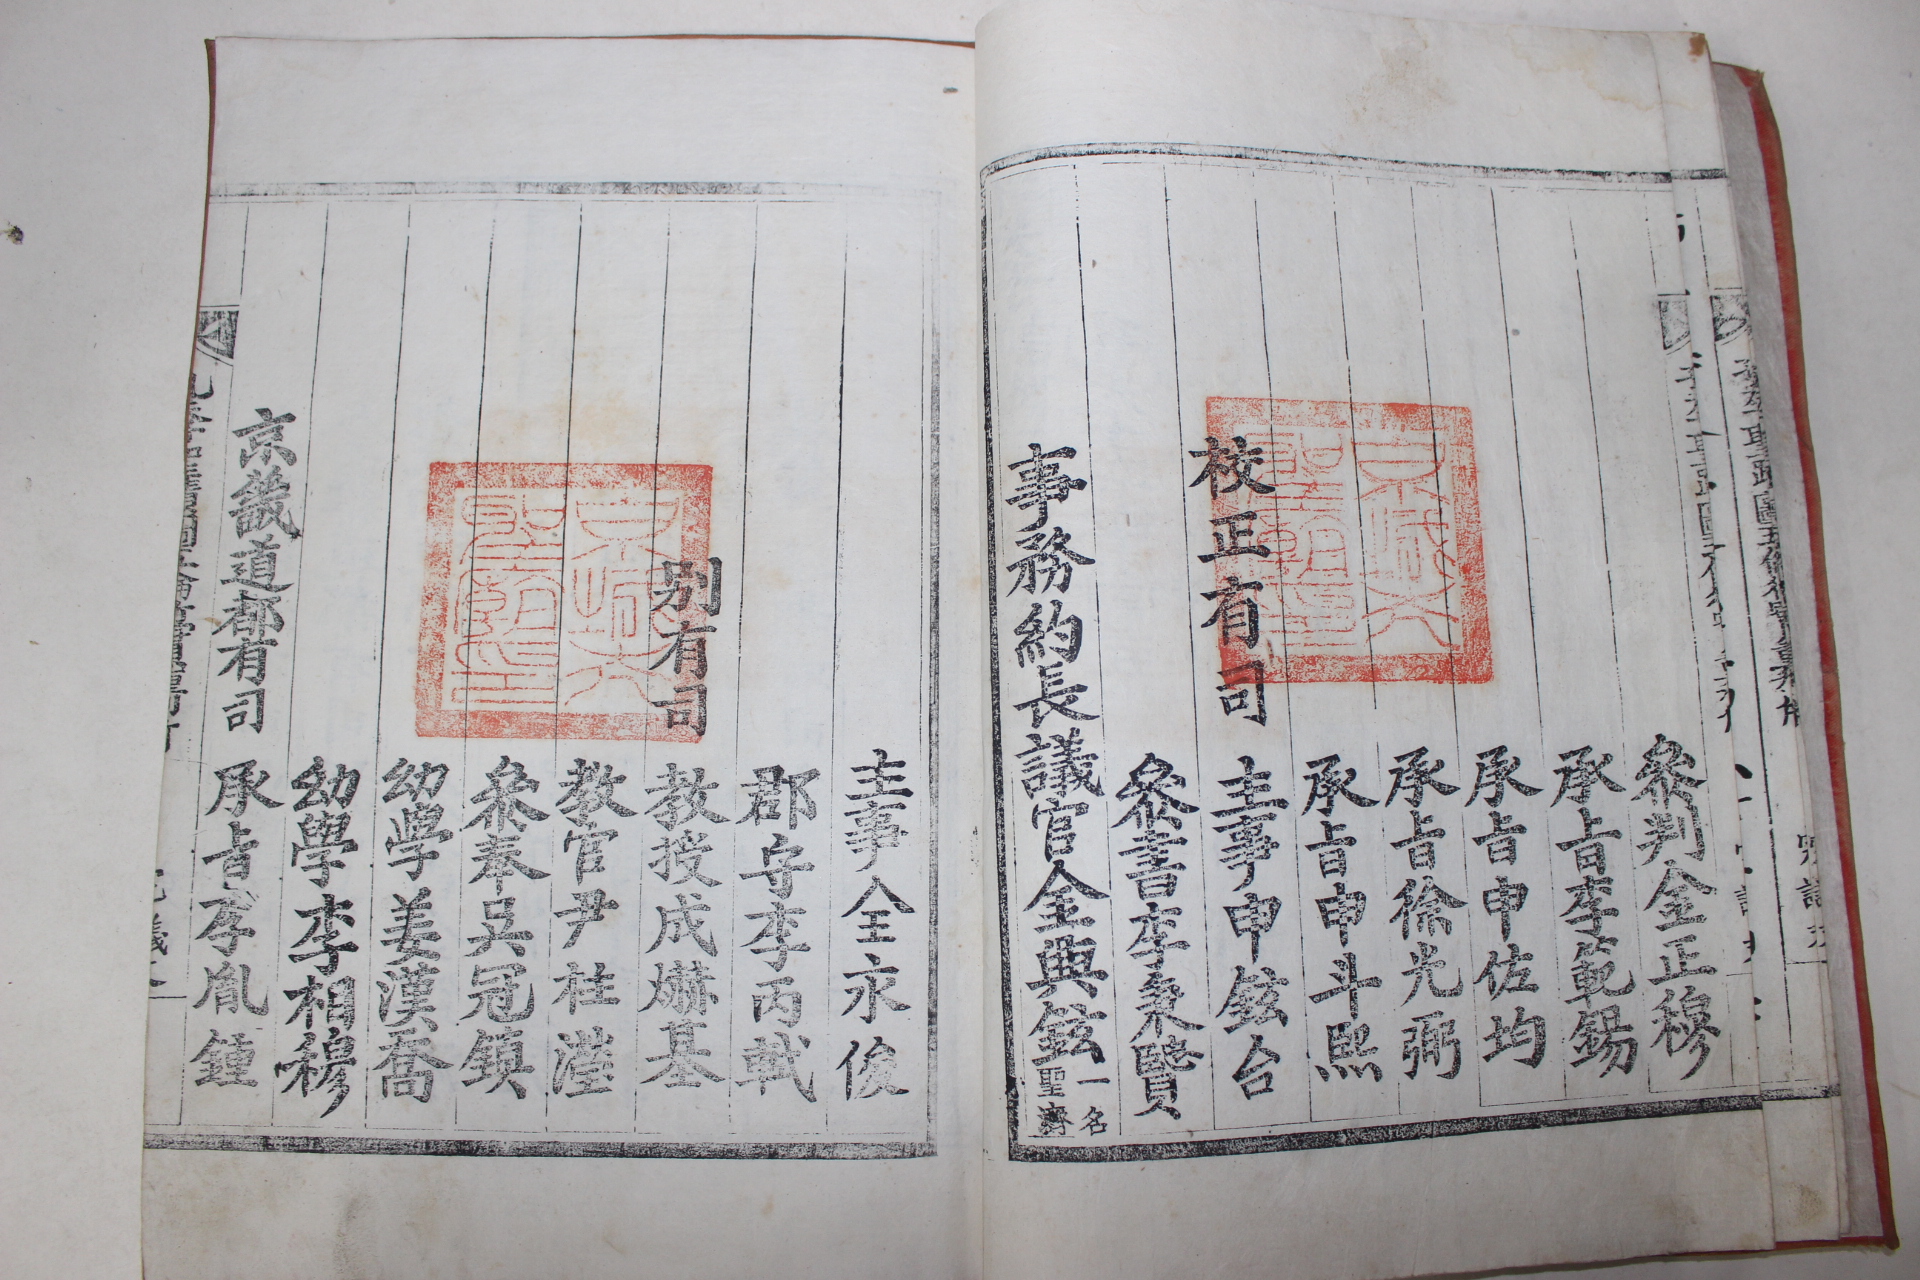 參判金正穆
承旨李範錫
承旨申佐均
承旨徐光弼
承旨申斗熙
校正有司
主事申鉉台
參書李秉賢
事務約長議官金典鉉一名聖濟
主事全永俊
郡守李丙軾
別有司
教授成爀基
教官尹桂瀅
參奉吳冠鎮
幼學姜漢喬
幼學李相穆
京畿道都有司
承旨李胤鍾